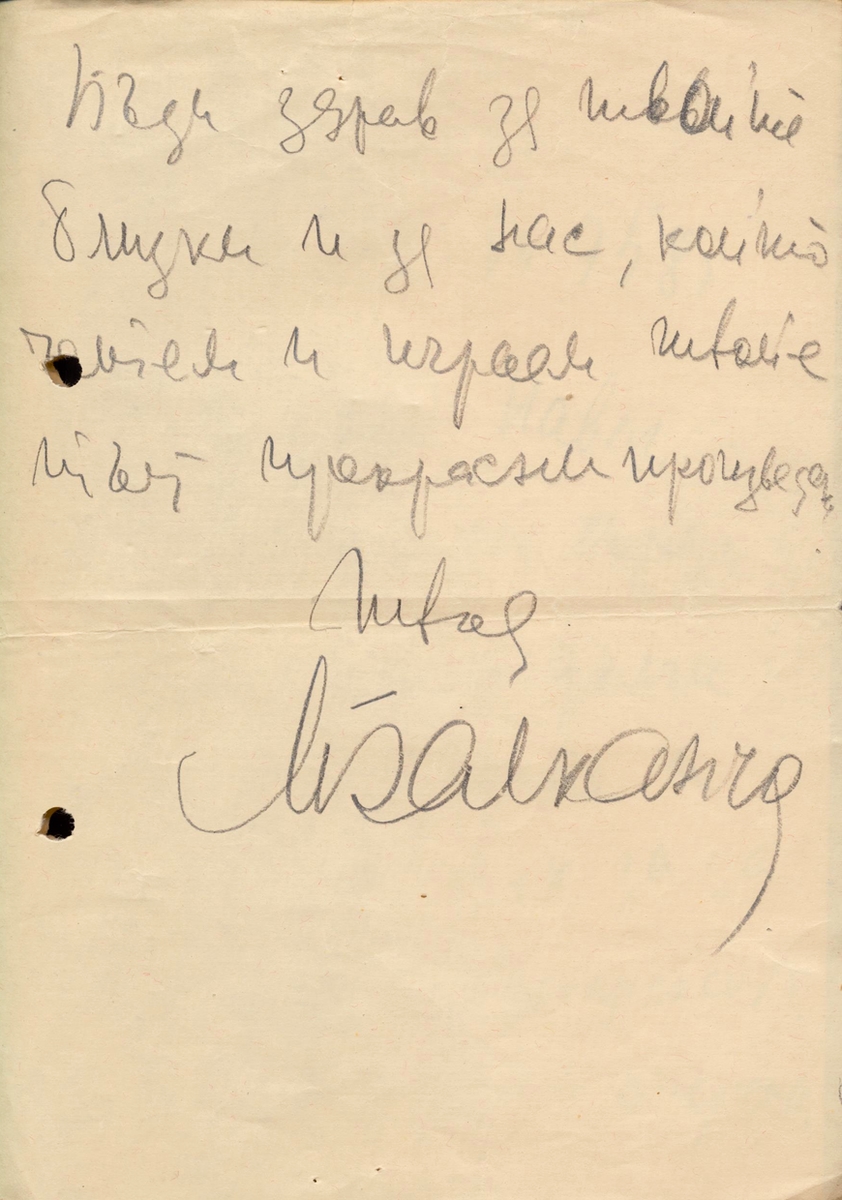 Бъди здрав за твоите
близки и за нас, които
и играем твоите
тъй прекрасни произвед.
Твоя